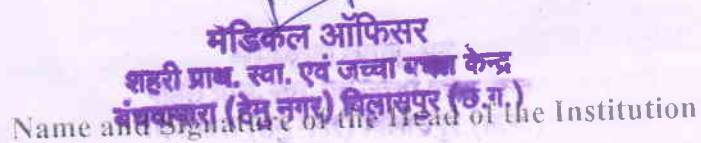 मेडिकल ऑफिसर
शहरी प्राथ. स्वा. एवं जच्चा बच्चा केन्द्र
बंधवापारा (हेमु नगर) बिलासपुर (छ.ग.)
Name and Signature of the Head of the Institution